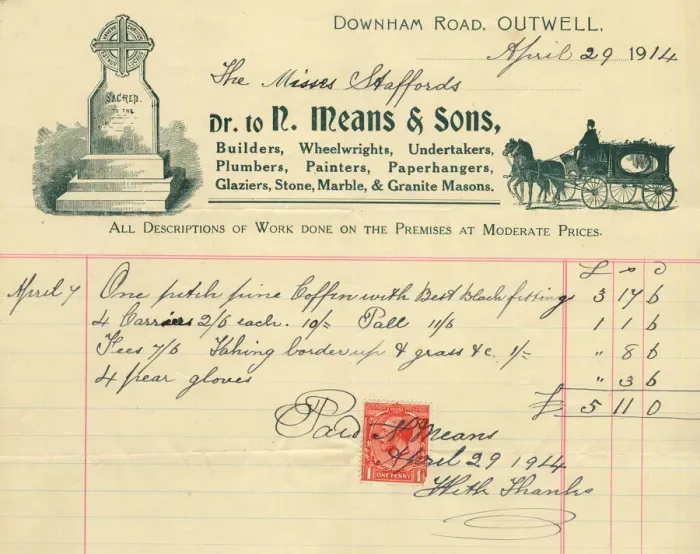 DOWNHAM ROAD, OUTWELL.
April 29 1914
The Misses Staffords
Dr. to N. Means & Sons,
Builders, Wheelwrights, Undertakers,
Plumbers, Painters, Paperhangers,
Glaziers, Stone, Marble, & Granite Masons.
SACRED
TO THE
ALL DESCRIPTIONS OF WORK DONE ON THE PREMISES AT MODERATE PRICES.
£ s d
April 7 One pitch pine Coffin with Best Black fittings 3 17 6
4 Carriers 2/6 each. 10/- Pall 11/6 1 1 6
Fees 7/6 Taking border up & grass &c. 1/- " 8 6
4 pear gloves " 3 6
£ 5 11 0
Paid N. Means
April 29 1914
With Thanks
1 ONE PENNY 1